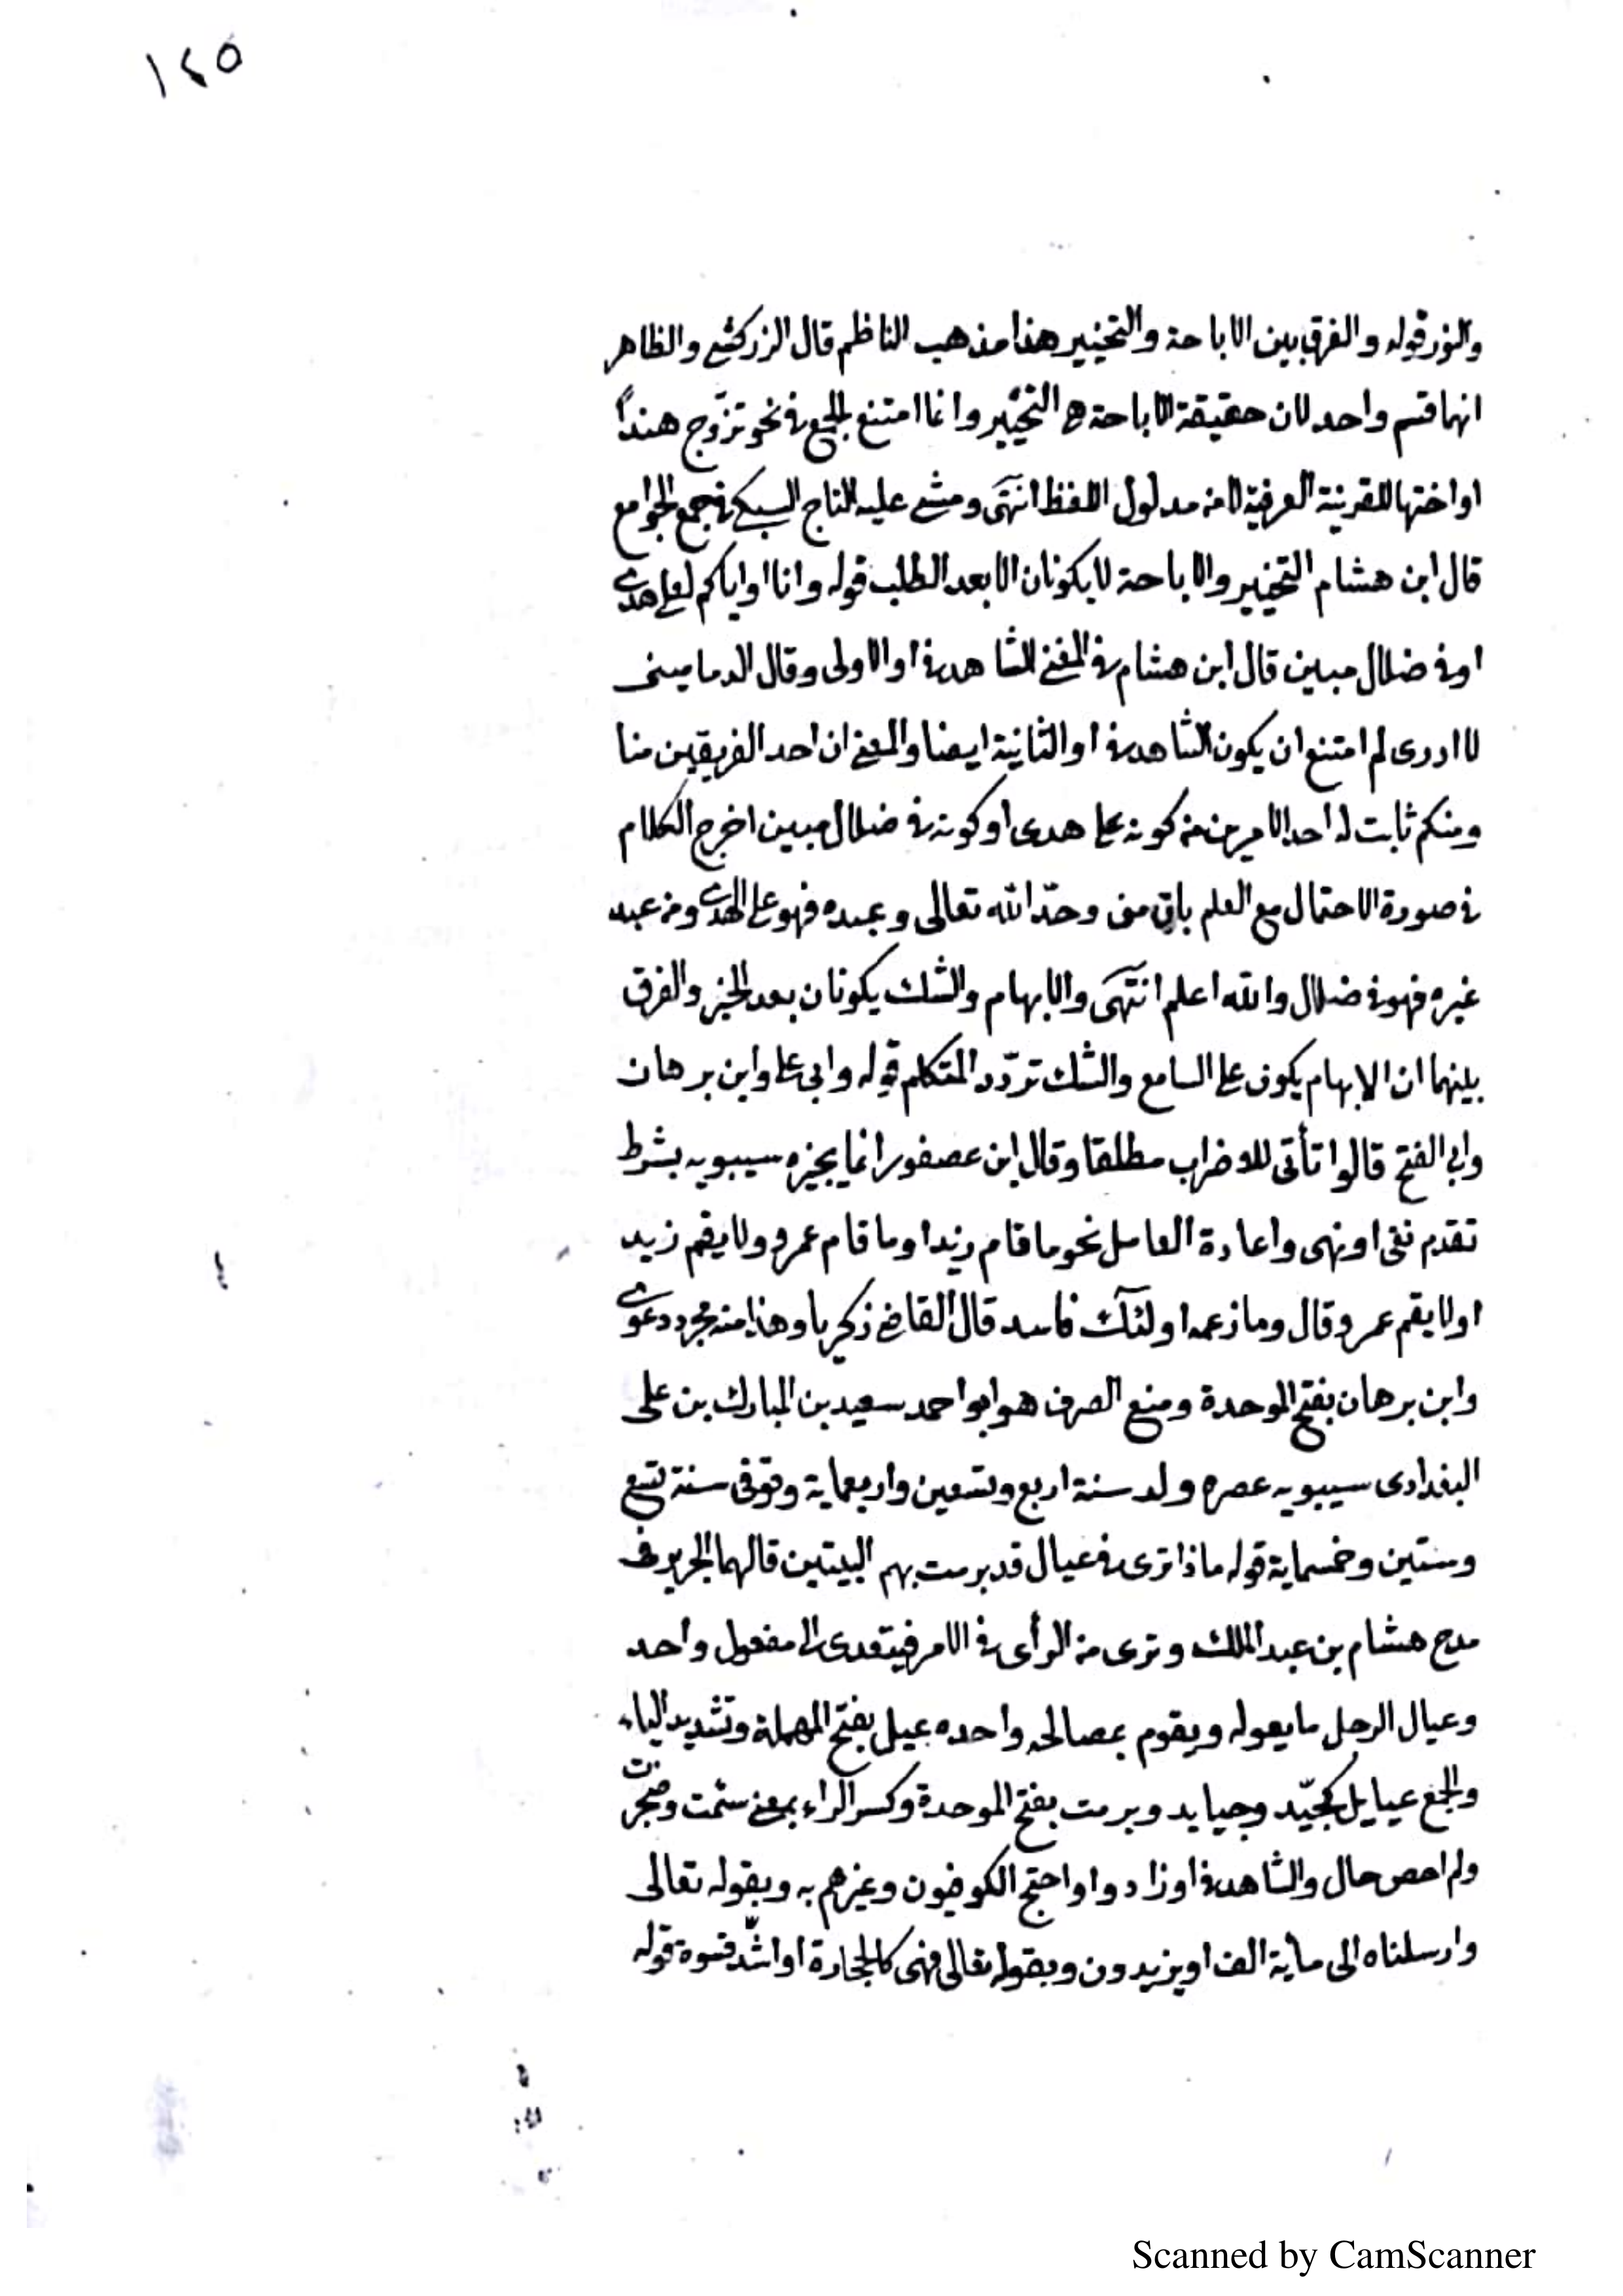 ١٤٥
والنور قوله والفرق بين الاباحة والتخيير هذا مذهب الناظم قال الزركشي والظاهر
انهما قسم واحد لان حقيقة الاباحة هي التخيير وانما امتنع الجمع في نحو تزوّج هنداً
او اختها للقرينة العرفية لا من مدلول اللفظ انتهى ومشى عليه التاج السبكي في جمع الجوامع
قال ابن هشام التخيير والاباحة لا يكونان الا بعد الطلب قوله وانا او اياكم لعلى هدى
او في ضلال مبين قال ابن هشام في المغني الشاهد في او الاولى وقال الدماميني
لا ادرى لم امتنع ان يكون الشاهد في او الثانية ايضا والمعنى ان احد الفريقين منا
ومنكم ثابت له احد الامرين من كونه على هدى او كونه في ضلال مبين اخرج الكلام
في صورة الاحتمال مع العلم بان من وحّد الله تعالى وعبده فهو على الهدى ومن عبد
غيره فهو في ضلال والله اعلم انتهى والابهام والشك يكونان بعد الخبر والفرق
بينهما ان الابهام يكون على السامع والشك تردّد المتكلم قوله وابي على وابن برهان
وابى الفتح قالوا تأتى للاضراب مطلقا وقال ابن عصفور انما يجيزه سيبويه بشرط
تقدم نفى او نهى واعادة العامل نحو ما قام زيد او ما قام عمرو ولا يقم زيد
او لا يقم عمرو قال وما زعمه اولئك فاسد قال القاضى زكريا وهذا منه مجرد دعوى
وابن برهان بفتح الموحدة ومنع الصرف هو ابو احمد سعيد بن المبارك بن على
البغدادى سيبويه عصره ولد سنة اربع وتسعين واربعماية وتوفى سنة تسع
وستين وخمسماية قوله ماذا ترى في عيال قد برمت بهم البيتين قالهما الجرير في
مدح هشام بن عبد الملك وترى من الرأى في الامر فيتعدى الى مفعول واحد
وعيال الرجل ما يعوله ويقوم بمصالحه واحده عيل بفتح المهملة وتشديد الياء
والجمع عيايل كجيّد وجيايد وبرمت بفتح الموحدة وكسر الراء بمعنى سئمت وضجرت
ولم احص حال والشاهد في او زادوا واحتج الكوفيون وغيرهم به وبقوله تعالى
وارسلناه الى مأية الف او يزيدون وبقوله تعالى فهى كالحجارة او اشدّ قسوة قوله
Scanned by CamScanner